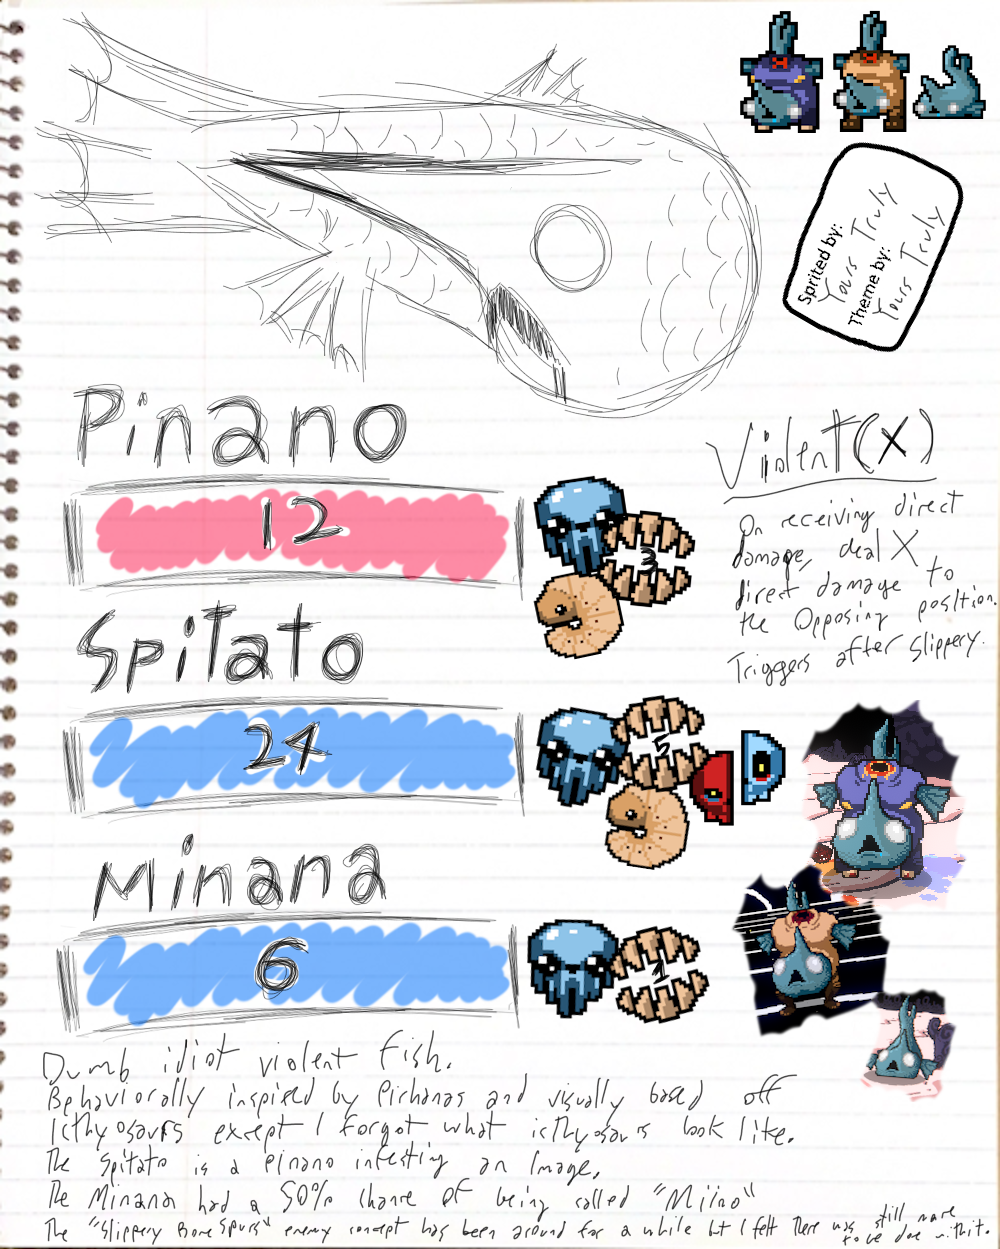 Sprited by:
Yours Truly
Theme by:
Yours Truly
Pinano
12
3
Violent(X)
On receiving direct
damage, deal X
direct damage to
the Opposing position.
Triggers after Slippery.
Spitato
24
5
Minana
6
1
Dumb idiot violent fish.
Behaviorally inspired by Pirhanas and visually based off
Icthyosaurs except I forgot what icthyosaurs look like.
The Spitato is a Pinano infesting an Image.
The Minana had a 50% chance of being called "Miino"
The "Slippery Bone Spurs" enemy concept has been around for a while but I felt there was still more
to be done with it.